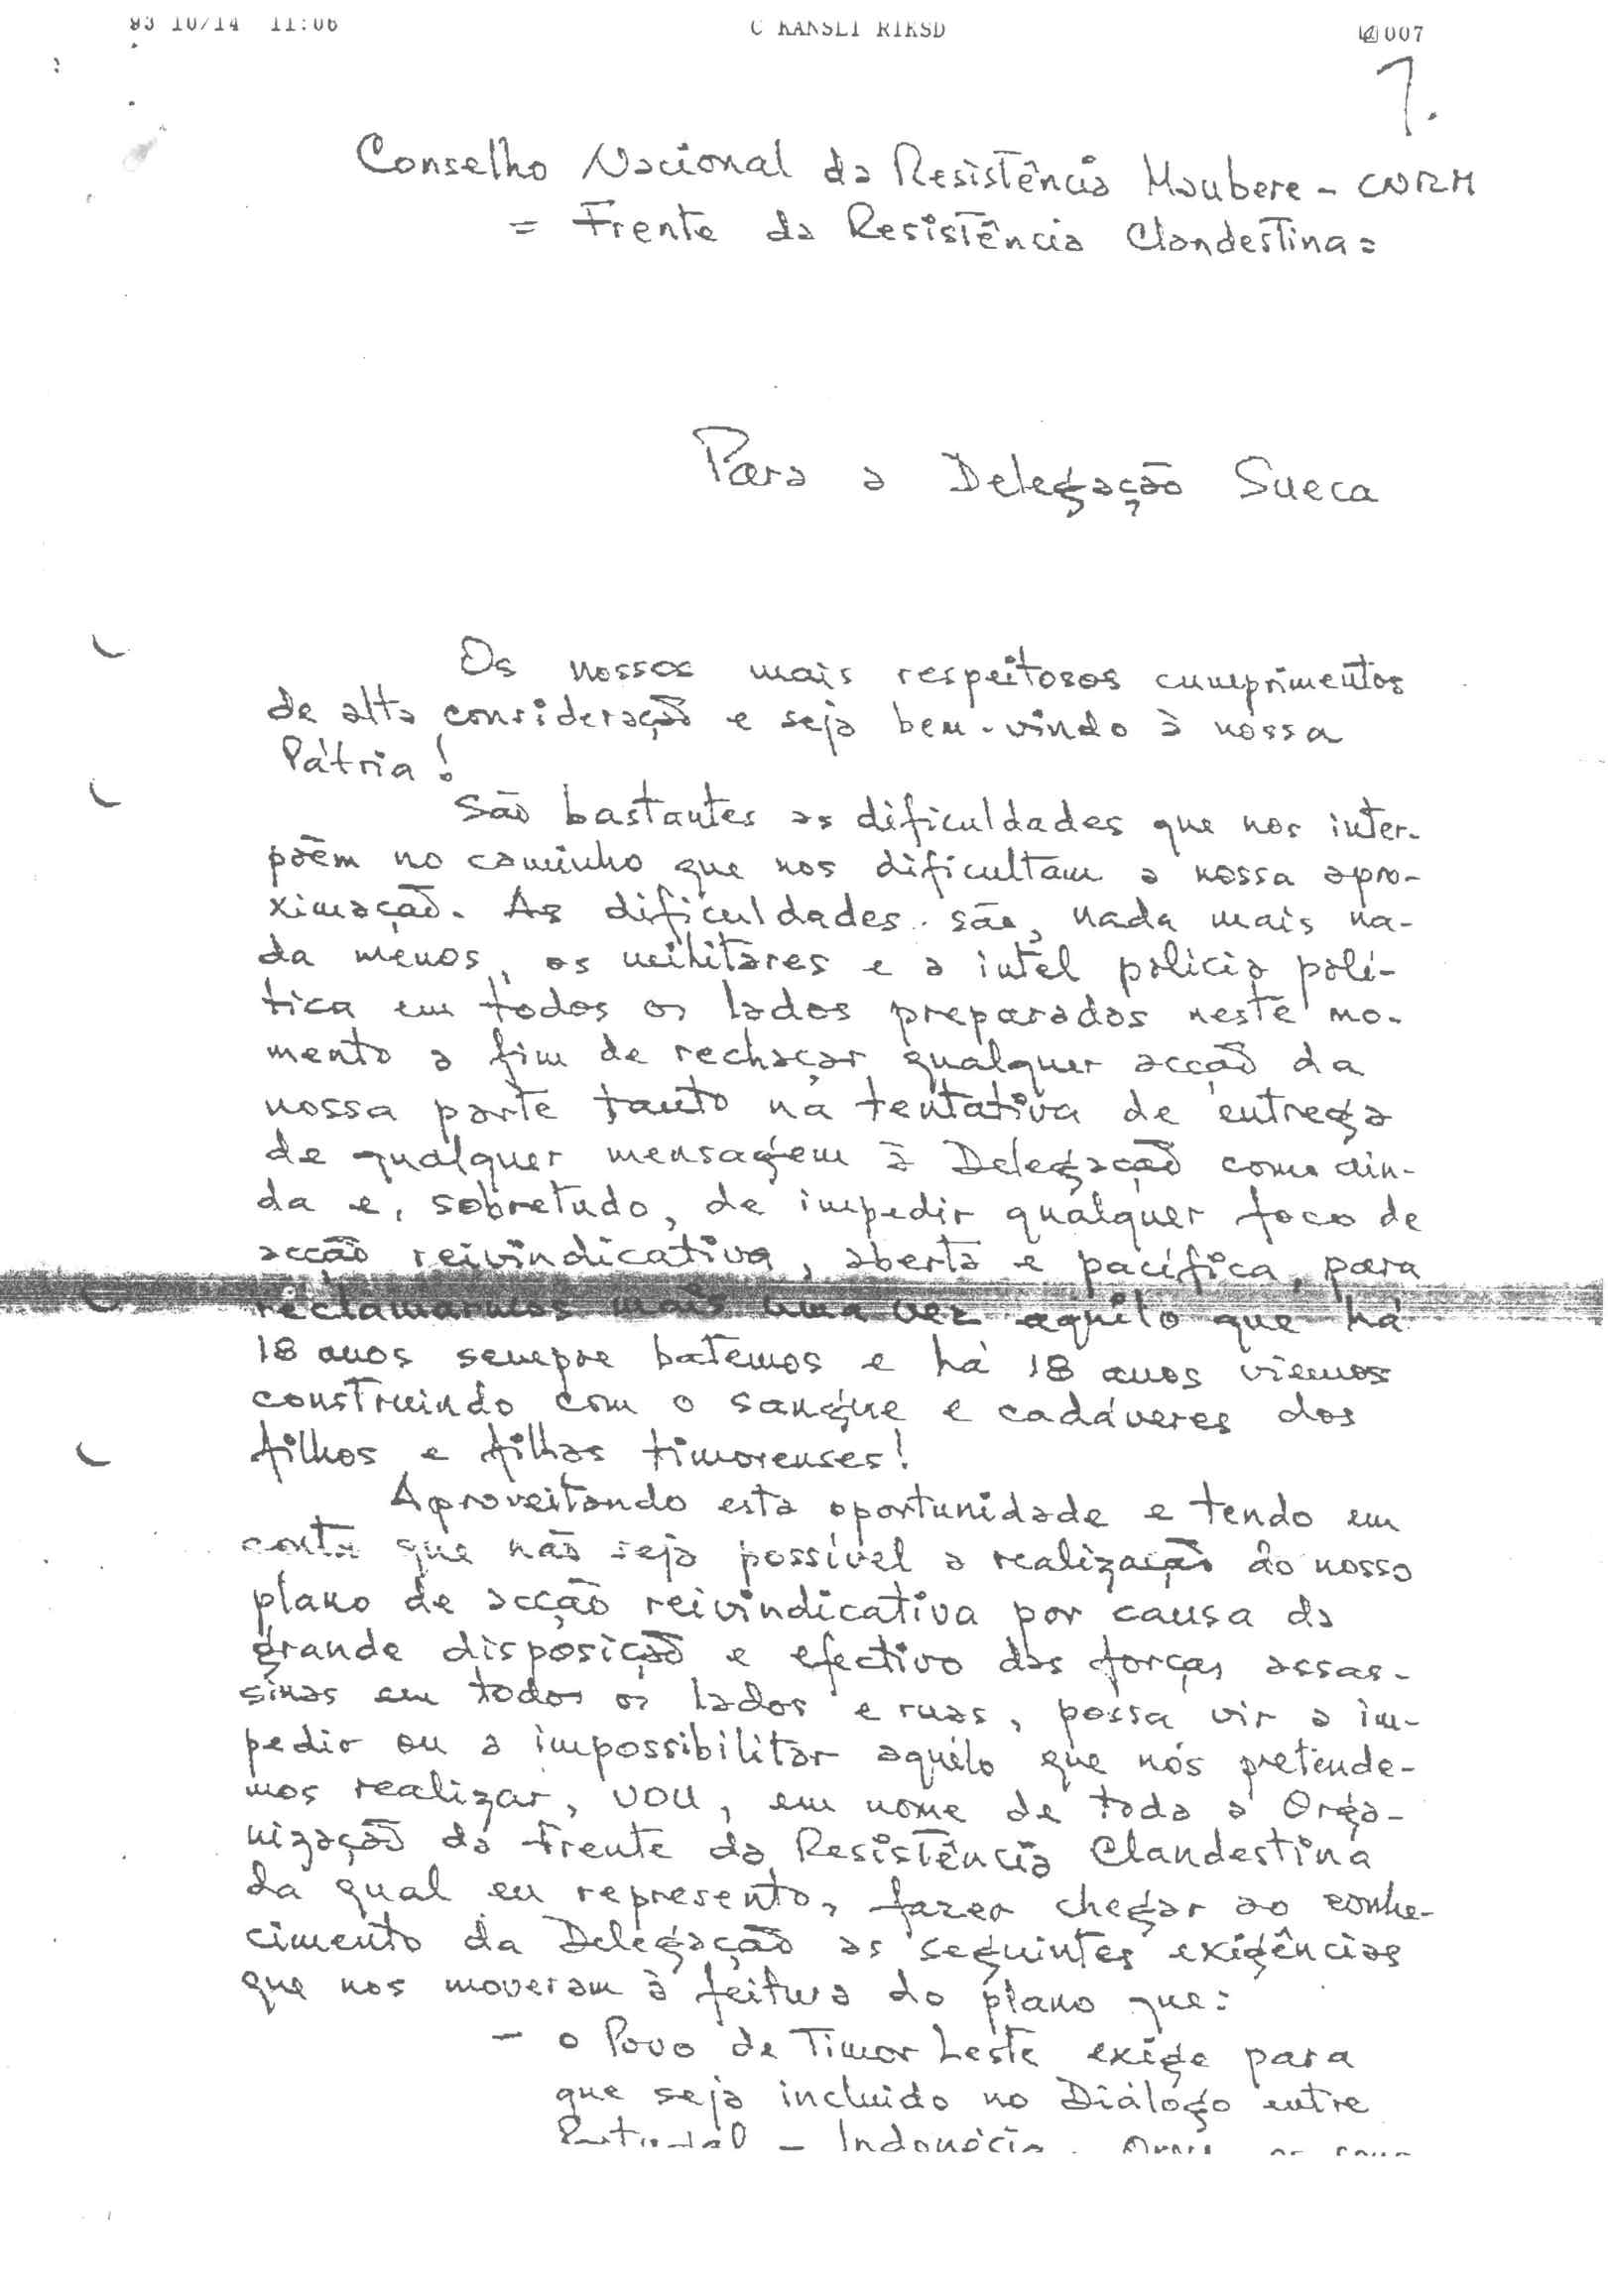 93 10/14 11:06 C KANSLI RIKSD 007
1.
Conselho Nacional da Resistência Maubere - CNRM
= Frente da Resistência Clandestina =
Para a Delegação Sueca
Os nossos mais respeitosos cumprimentos
de alta consideração e seja bem-vindo à nossa
Pátria!
São bastantes as dificuldades que nos inter-
põem no caminho que nos dificultam a nossa apro-
ximação. As dificuldades são, nada mais na-
da menos, os militares e a intel polícia polí-
tica em todos os lados preparados neste mo-
mento a fim de rechaçar qualquer acção da
nossa parte tanto na tentativa de entrega
de qualquer mensagem à Delegação como ain-
da e, sobretudo, de impedir qualquer foco de
acção reivindicativa, aberta e pacífica, para
reclamarmos mais uma vez aquilo que há
18 anos sempre batemos e há 18 anos viemos
construindo com o sangue e cadáveres dos
filhos e filhas timorenses!
Aproveitando esta oportunidade e tendo em
conta que não seja possível a realização do nosso
plano de acção reivindicativa por causa da
grande disposição e efectivo das forças assas-
sinas em todos os lados e ruas, possa vir a im-
pedir ou a impossibilitar aquilo que nós pretende-
mos realizar, vou, em nome de toda a Orga-
nização da Frente da Resistência Clandestina
da qual eu represento, fazer chegar ao conhe-
cimento da Delegação as seguintes exigências
que nos moveram à feitura do plano que:
- o Povo de Timor Leste exige para
que seja incluido no Diálogo entre
Portugal - Indonésia